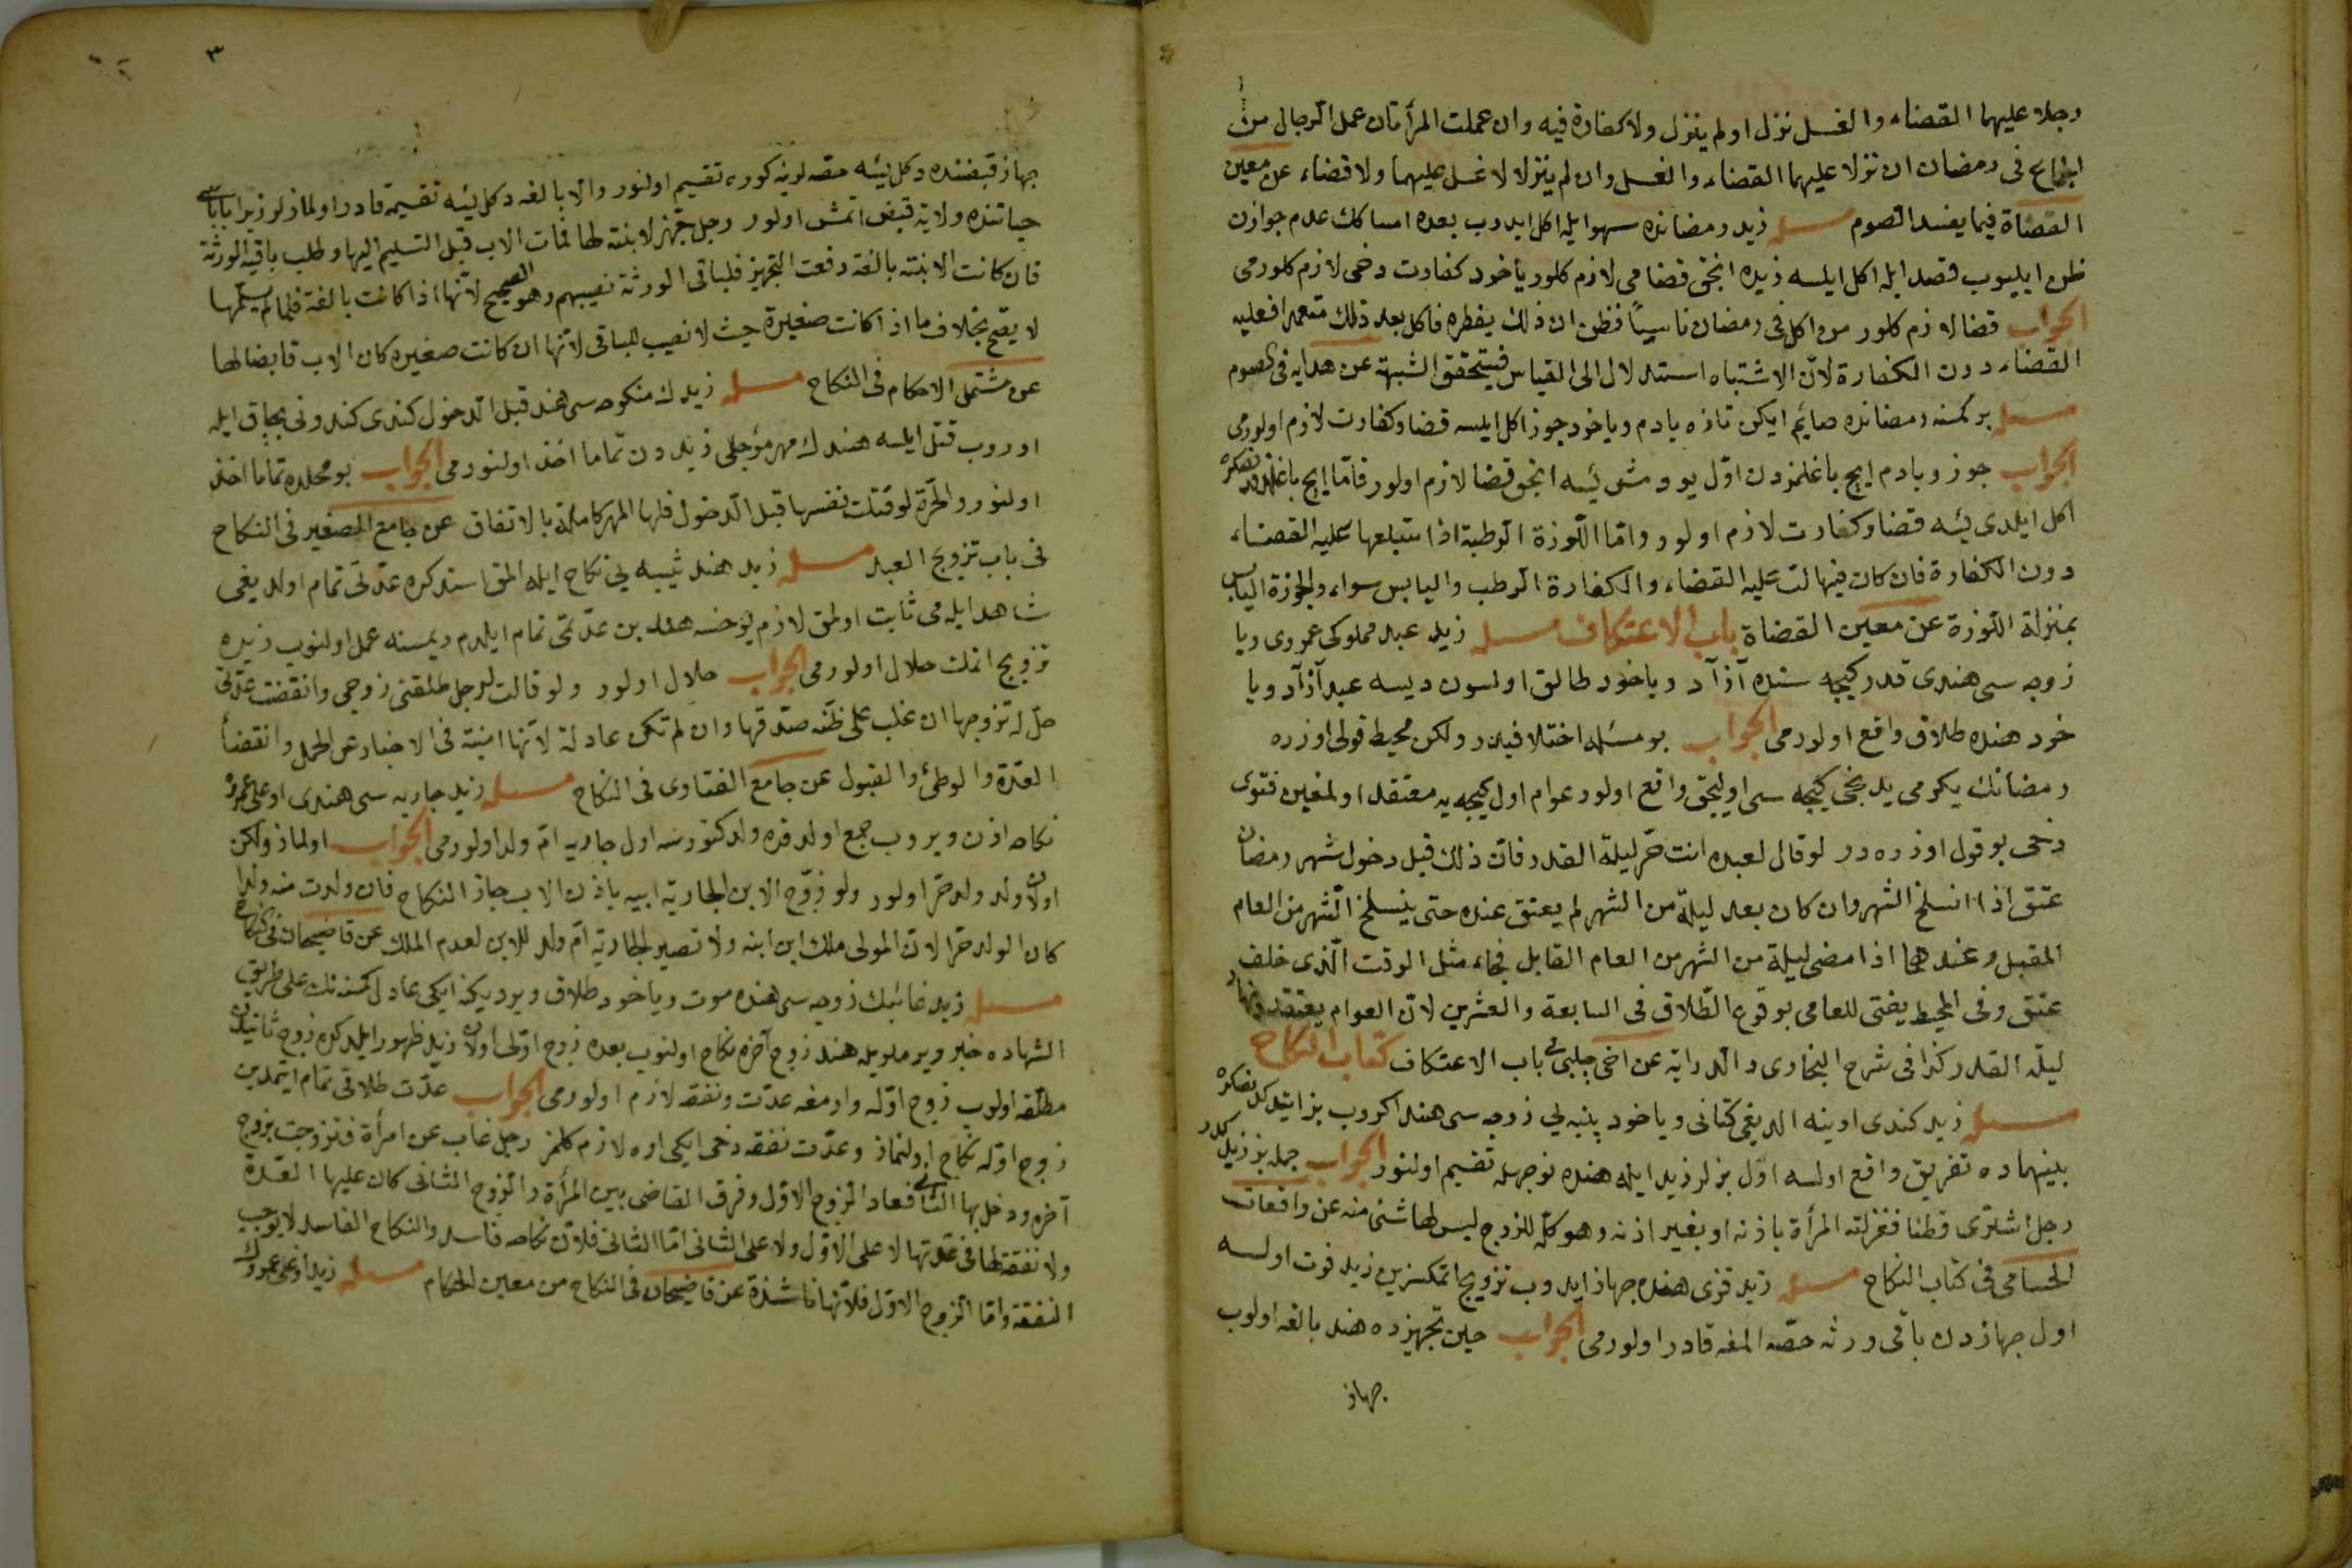 رجلا عليهما القضاء والغسل نزل او لم ينزل ولا كفارة فيه وان عملت المرأتان عمل الرجال من
الجماع فى رمضان ان نزلا عليهما القضاء والغسل وان لم ينزلا لا غسل عليهما ولا قضاء عن معين
القضاة فيما يفسد الصوم مسئله زيد رمضانده سهوايله اكل ايدوب بعده امساكك عدم جوازن
ظن ايليوب قصد ايله اكل ايلسه زيده انجق قضا مى لازم كلور ياخود كفارت دخى لازم كلورمى
الجواب قضا لازم كلور من اكل فى رمضان ناسيا فظن ان ذلك يفطره فاكل بعد ذلك متعمدا فعليه
القضاء دون الكفارة لان الاشتباه استدلال الى القياس فيتحقق الشبهة عن هدايه فى الصوم
مسئله بر كمسنه رمضانده صايم ايكن تازه بادم وياخود جوز اكل ايلسه قضا وكفارت لازم اولورمى
الجواب جوز وبادم ايچ باغلمزدن اول يودمش ايسه انجق قضا لازم اولور فاما ايچ باغلدقدنصكره
اكل ايلدى ايسه قضا وكفارت لازم اولور واما اللوزة الرطبة اذا ابتلعها عليه القضاء
دون الكفارة فان كان فيها لب عليه القضاء والكفارة الرطب واليابس سواء والجوزة اليابس
بمنزلة اللوزة عن معين القضاة باب الاعتكاف مسئله زيد عبد مملوكى عمروى ويا
زوجه سى هندى قدر كيجه سنده آزاد وياخود طالق اولسون ديسه عبد آزاد ويا
خود هنده طلاق واقع اولورمى الجواب بو مسئله اختلافيدر ولكن محيط قولى اوزره
رمضانك يكرمى يدنجى كيجه سى اوليجق واقع اولور عوام اول كيجه يه معتقد اولمغين فتوى
دخى بو قول اوزره در لو قال لعبده انت حر ليلة القدر فان ذلك قبل دخول شهر رمضان
عتق اذا انسلخ الشهر وان كان بعد ليلة من الشهر لم يعتق عنده حتى ينسلخ الشهر من العام
المقبل وعندهما اذا مضى ليلة من الشهر من العام القابل فجاء مثل الوقت الذى خلف
عتق وفى المحيط يفتى للعامى بوقوع الطلاق فى السابعة والعشرين لان العوام يعتقدونها
ليلة القدر كذا فى شرح البخارى والدراية عن اخى چلبى فى باب الاعتكاف كتاب النكاح
مسئله زيد كندى اوينه الديغى كتانى وياخود پنبه يى زوجه سى هند اكروب بز ايتدكدنصكره
بينهماده تفريق واقع اولسه اول بزلر زيد ايله هنده نوجهله تقسيم اولنور الجواب جمله بز زيدكدر
رجل اشترى قطنا فغزلته المرأة باذنه او بغير اذنه وهو كله للزوج ليس لها شئ منه عن واقعات
الحسامى فى كتاب النكاح مسئله زيد قزى هنده جهاز ايدوب تزويج اتمكسزين زيد فوت اولسه
اول جهازدن باقى ورثه حصه المغه قادر اولورمى الجواب حين تجهيزده هند بالغه اولوب
جهاز
٣
جهاز قبضنده دكل ايسه حصه لرينه كوره تقسيم اولنور والا بالغه دكل ايسه تقسيمه قادر اولمازلر زيرا باباسى
حياتنده ولاية قبض اتمش اولور رجل جهز لابنته لها فمات الاب قبل التسليم اليها وطلب باقى الورثة
فان كانت الابنة بالغة وقت التجهيز فلباقى الورثة نصيبهم وهو الصحيح لانها اذا كانت بالغة فلما لم يسلمها
لا يقع بخلاف ما اذا كانت صغيرة حيث لا نصيب للباقى لانها ان كانت صغيره كان الاب قابضا لها
عن مشتمل الاحكام فى النكاح مسئله زيدك منكوحه سى هند قبل الدخول كندى كندونى بچاق ايله
اوروب قتل ايلسه هندك مهر مؤجلى زيددن تماما اخذ اولنورمى الجواب بو محلده تماما اخذ
اولنور والحرة لو قتلت نفسها قبل الدخول فلها المهر كاملة بالاتفاق عن جامع الصغير فى النكاح
فى باب تزويج العبد مسئله زيد هند ثيبه يى نكاح ايله المق استدكده عدتى تمام اولديغى
شاهد ايله مى ثابت اولمق لازم يوخسه هند بن عدتمى تمام ايلدم ديمسنه عمل اولنوب زيده
تزويج اتمك حلال اولورمى الجواب حلال اولور ولو قالت لرجل طلقنى زوجى وانقضت عدتى
حل له تزوجها ان غلب على ظنه صدقها وان لم تكن عادلة لانها امينة فى الاخبار عن الحمل وانقضاء
العدة والوطئ والقبول عن جامع الفتاوى فى النكاح مسئله زيد جاريه سى هندى اوغلى عمرو
نكاحه اذن ويروب جمع اولدقده ولد كتورسه اول جاريه ام ولد اولورمى الجواب اولماز ولكن
اولان ولد ولد حر اولور ولو زوج الابن الجارية ابيه باذن الاب جاز النكاح فان ولدت منه ولدا
كان الولد حرا لان المولى ملك ابن ابنه ولا تصير الجارية ام ولد للابن لعدم الملك عن قاضيخان فى النكاح
مسئله زيد غائبك زوجه سى هنده موت وياخود طلاق ويرديكنه ايكى عادل كمسنه نك على طريق
الشهاده خبر ويرملريله هند زوج آخره نكاح اولنوب بعده زوج اولى اولان زيد ظهور ايلدكده زوج ثانيدن
مطلقه اولوب زوج اوله وارمغه عدت ونفقه لازم اولورمى الجواب عدت طلاقى تمام ايتمدين
زوج اوله نكاح اولنماز وعدت نفقه دخى ايكى اوه لازم كلمز رجل غاب عن امرأة فتزوجت بزوج
آخر ودخل بها الثانى فعاد الزوج الاول وفرق القاضى بين المرأة والزوج الثانى كان عليها العدة
ولا نفقة لها فى عدتها لا على الاول ولا على الثانى اما الثانى فلان نكاحه فاسد والنكاح الفاسد لا يوجب
النفقة واما الزوج الاول فلانها ناشزة عن قاضيخان فى النكاح من معين الحكام مسئله زيد اوغلى عمروك